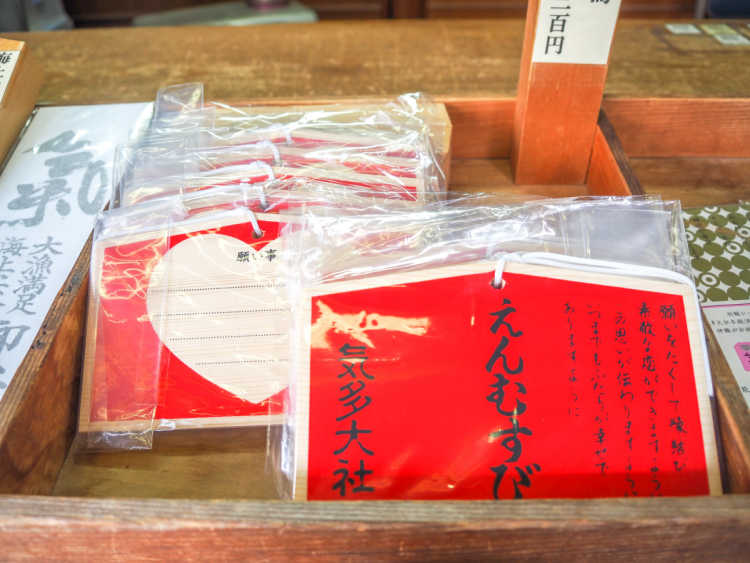 願いをたくして縁結び
素敵な恋ができますように
この思いが伝わりますように
いつまでもふたりが幸せで
ありますように
えんむすび
気多大社
願い事
大漁満足
海上安全
百円